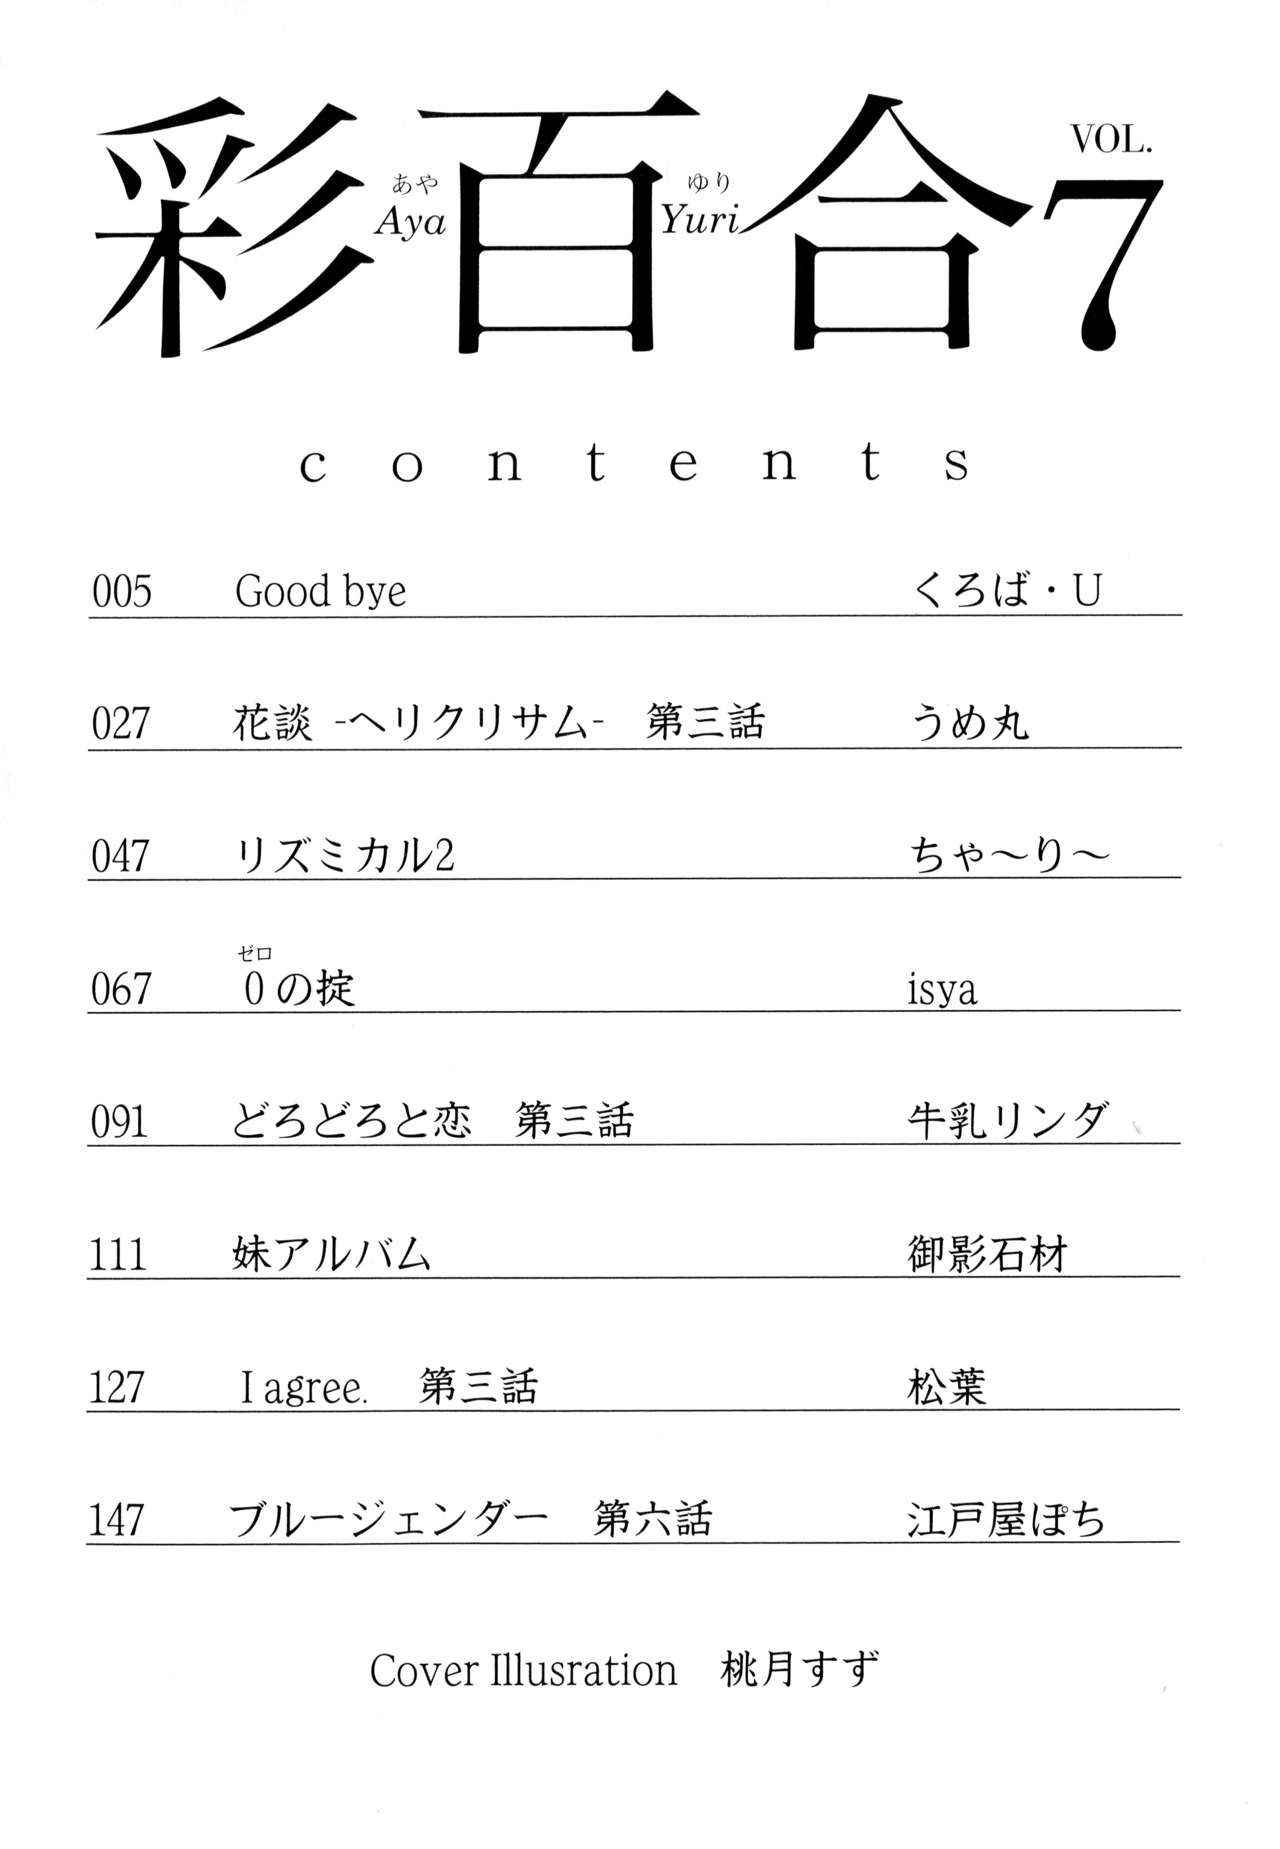 彩百合 VOL.7
あや ゆり
Aya Yuri
contents
005 Good bye くろば・U
027 花談 -ヘリクリサム- 第三話 うめ丸
047 リズミカル2 ちゃ～り～
ゼロ
067 0の掟 isya
091 どろどろと恋 第三話 牛乳リンダ
111 妹アルバム 御影石材
127 I agree. 第三話 松葉
147 ブルージェンダー 第六話 江戸屋ぽち
Cover Illusration 桃月すず